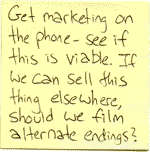 Get marketing on
the phone - see if
this is viable. If
we can sell this
thing elsewhere,
should we film
alternate endings?